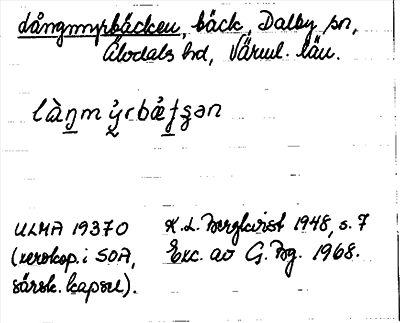 Långmyrbäcken, bäck, Dalby sn,
Älvdals hd, Värml. län.
làŋm ỳrbæ̀tʂən
ULMA 19370 K.L. Bergkvist 1948, s. 7
(xerokop. i SOA, Exc. av G. Bg. 1968.
särsk. kapsel).